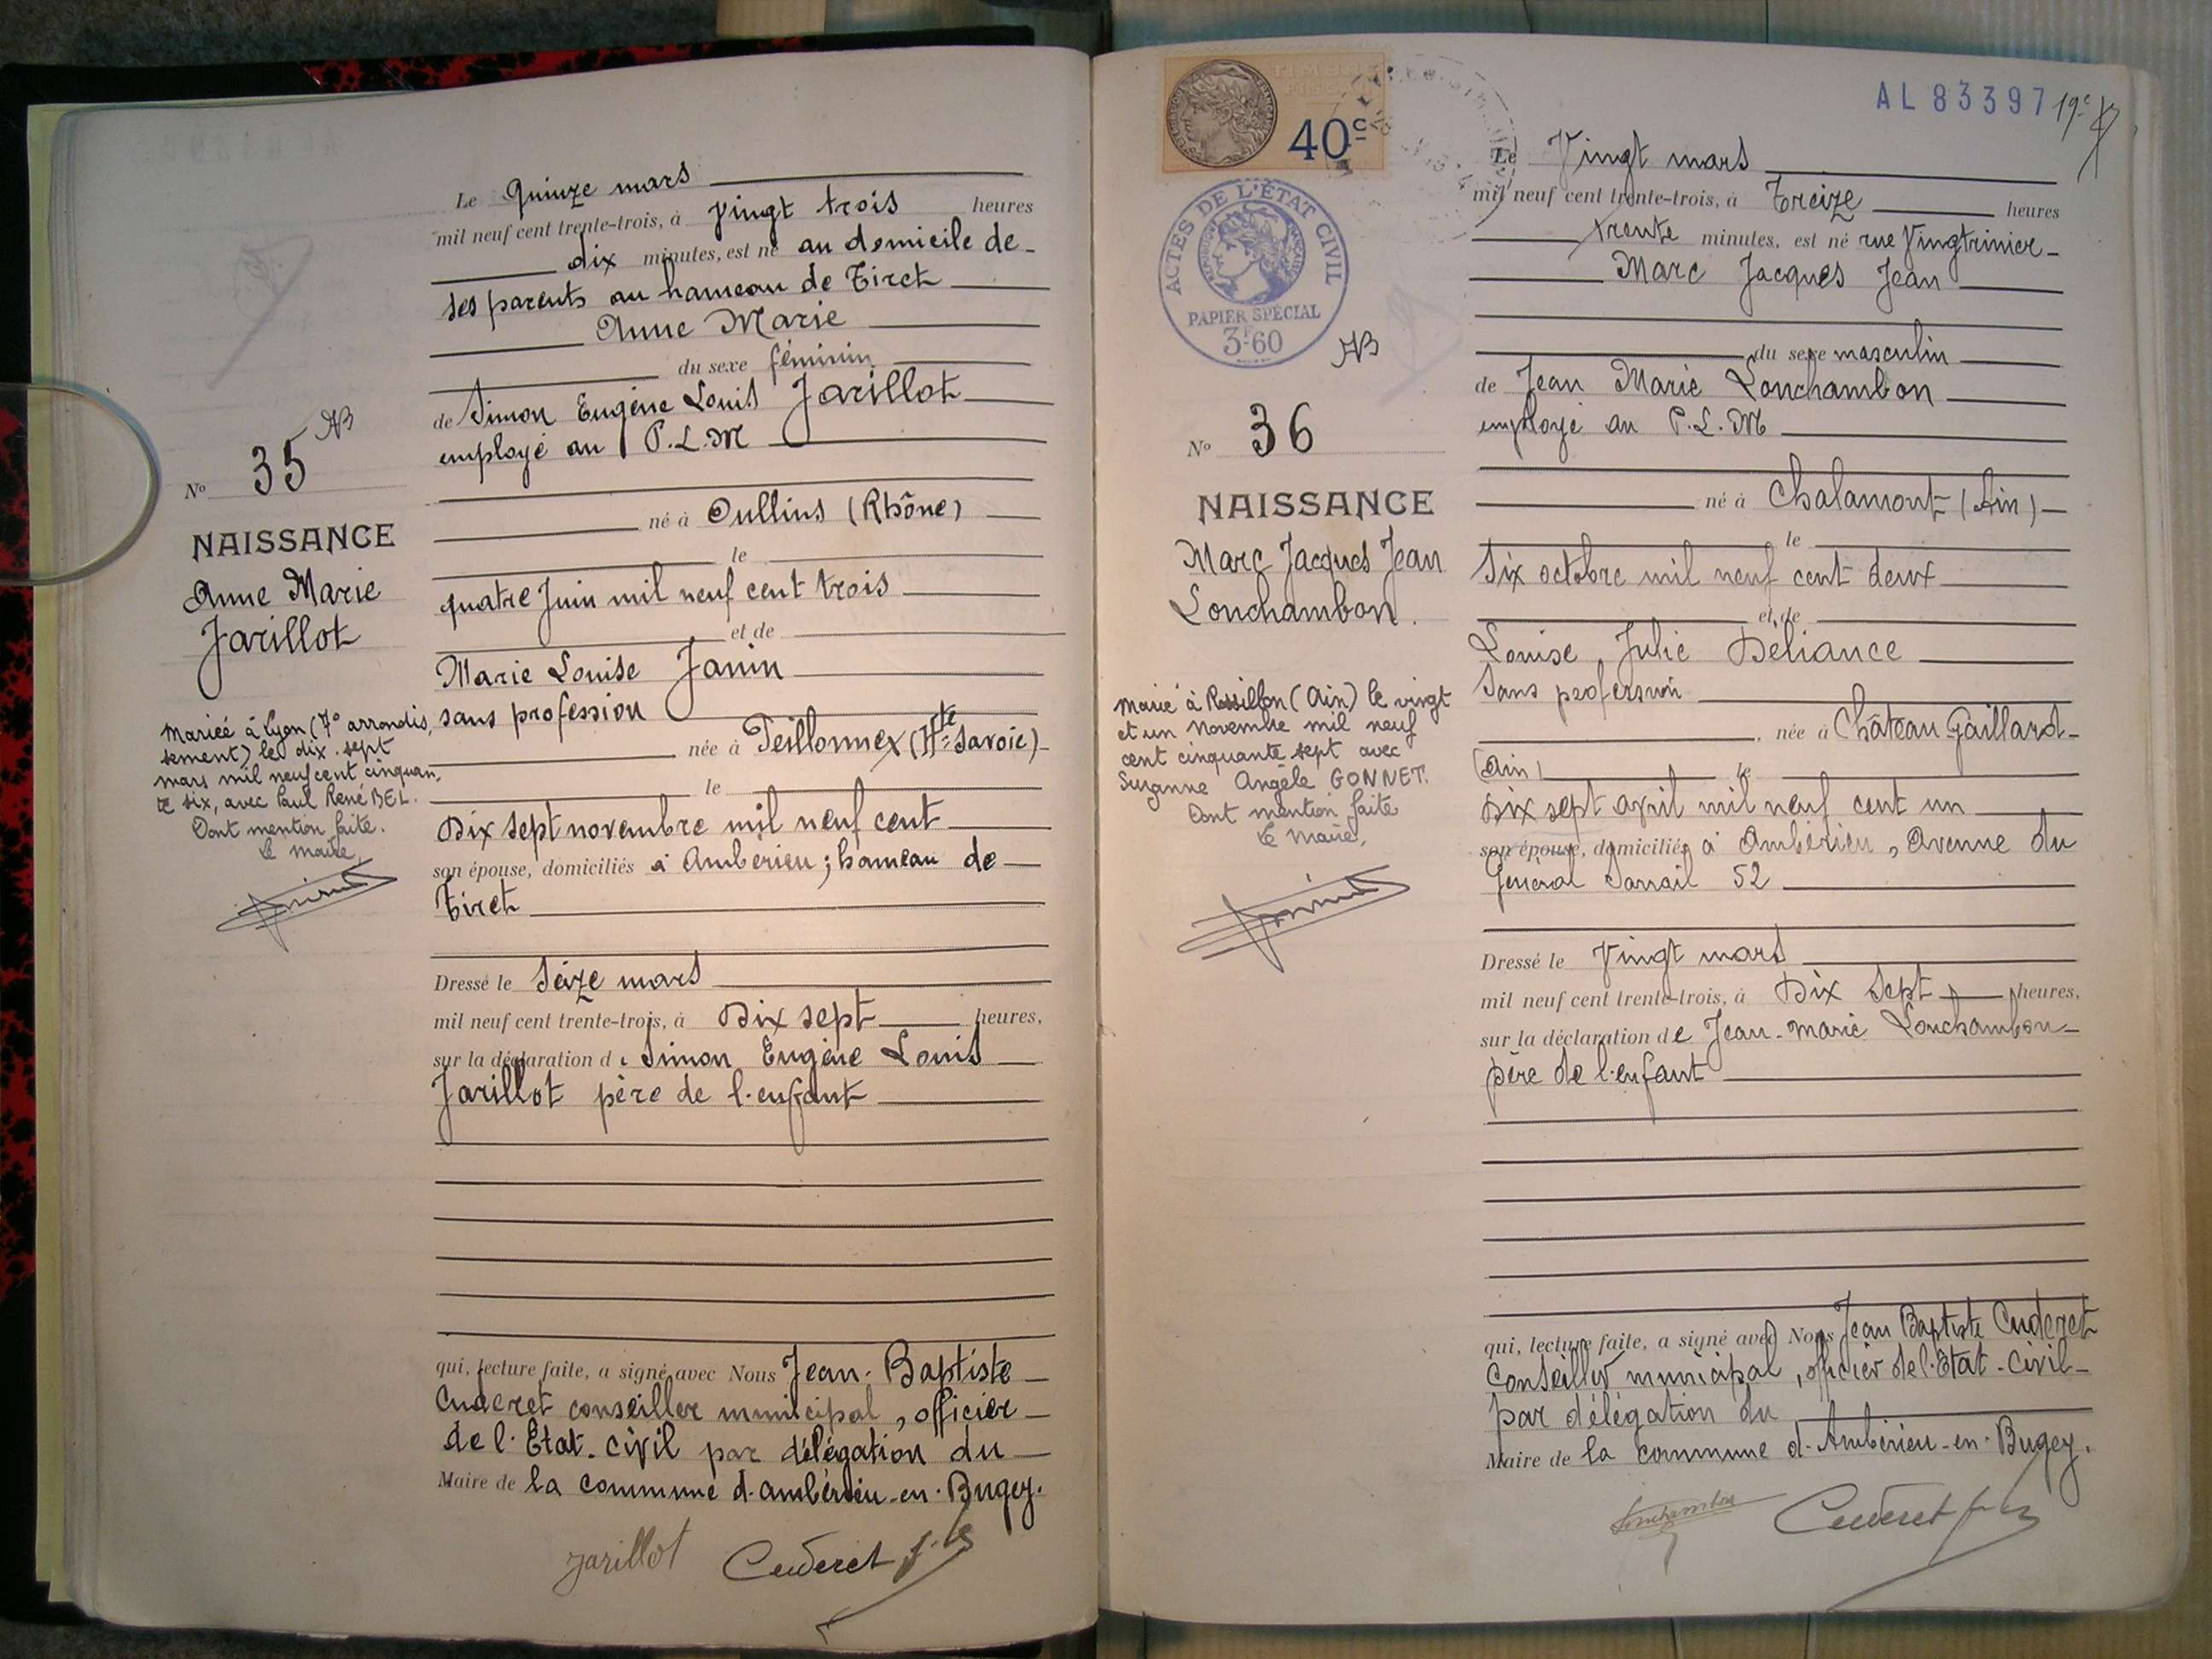 Le Quinze mars
mil neuf cent trente-trois, à vingt trois heures
dix minutes, est né au domicile de
ses parents au hameau de Tiret
Anne Marie
du sexe féminin
de Simon Eugène Louis Jarillot
employé au P.L.M
né à Oullins (Rhône)
le
quatre Juin mil neuf cent trois
et de
Marie Louise Janin
sans profession
née à Peillonnex (Hte Savoie)
le
Dix sept novembre mil neuf cent
son épouse, domiciliés à Ambérieu ; hameau de
Tiret
Dressé le Seize mars
mil neuf cent trente-trois, à Dix sept heures,
sur la déclaration de Simon Eugène Louis
Jarillot père de l'enfant
qui, lecture faite, a signé avec Nous Jean-Baptiste
Cuderet conseiller municipal, officier
de l'Etat-civil par délégation du
Maire de la commune d'Ambérieu-en-Bugey.
Jarillot Cuderet
AB
No 35
NAISSANCE
Anne Marie
Jarillot
Mariée à Lyon (7e arrondis,
sement) le dix-sept
mars mil neuf cent cinquan,
te six, avec Paul René BEL.
Dont mention faite.
Le Maire,
TIMBRE
FISCAL
40c
ACTES DE L'ÉTAT CIVIL
RÉPUBLIQUE FRANÇAISE
PAPIER SPÉCIAL
3F60
AB
No 36
NAISSANCE
Marc Jacques Jean
Lonchambon.
Marié à Rossillon (Ain) le vingt
et un Novembre mil neuf
cent cinquante sept avec
Suzanne Angèle GONNET.
Dont mention faite
Le Maire,
AL 83397 19e
Le Vingt mars
mil neuf cent trente-trois, à Treize heures
trente minutes, est né rue Vingtrinier
Marc Jacques Jean
du sexe masculin
de Jean Marie Lonchambon
employé au P.L.M
né à Chalamont (Ain)
le
Six octobre mil neuf cent deux
et de
Louise Julie Deliance
Sans profession
née à Château Gaillard
(Ain) le
Dix sept avril mil neuf cent un
son épouse, domiciliés à Ambérieu, Avenue du
Général Sarrail 52
Dressé le Vingt mars
mil neuf cent trente-trois, à Dix Sept heures,
sur la déclaration de Jean-Marie Lonchambon
père de l'enfant
qui, lecture faite, a signé avec Nous Jean Baptiste Cuderet
Conseiller municipal, officier de l'Etat-Civil
par délégation du
Maire de la commune d'Ambérieu-en-Bugey.
Lonchambon Cuderet